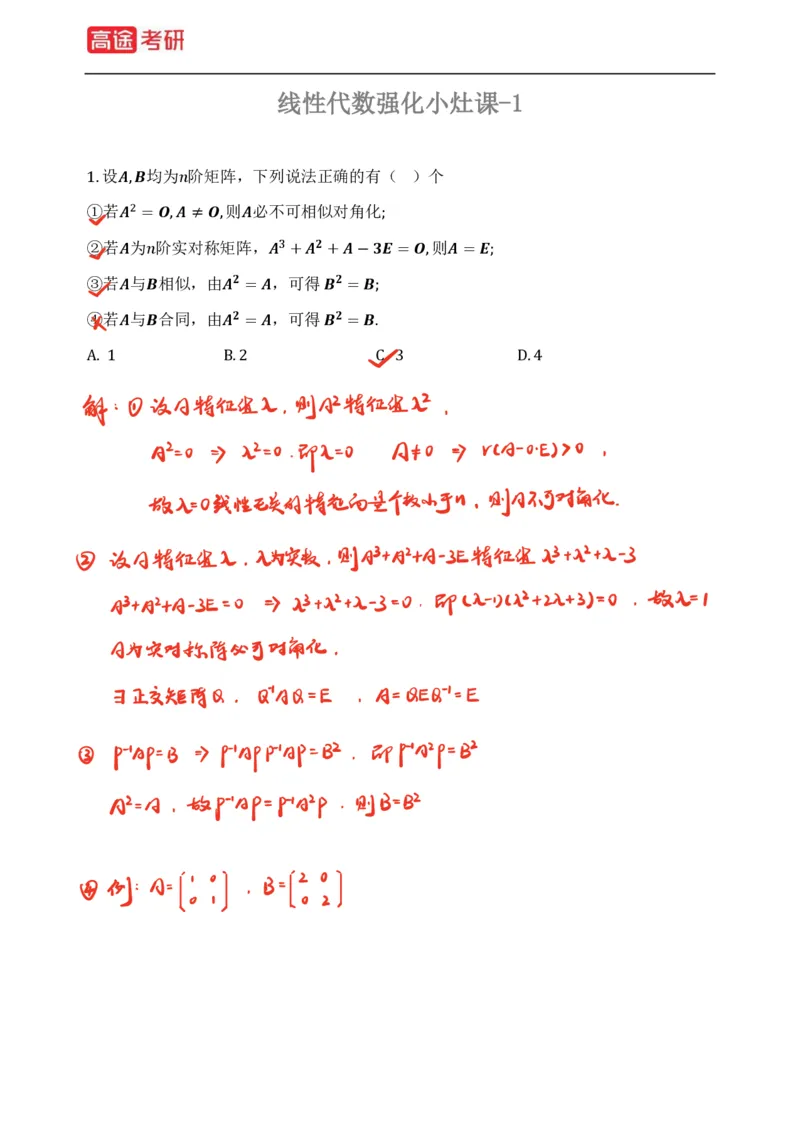 高途 考研
线性代数强化小灶课-1
1.设A,B均为n阶矩阵，下列说法正确的有（ ）个
①若A² = O,A ≠ O,则A必不可相似对角化;
②若A为n阶实对称矩阵，A³ + A² + A − 3E = O,则A = E;
③若A与B相似，由A² = A，可得B² = B;
④若A与B合同，由A² = A，可得B² = B.
A. 1 B. 2 C. 3 D. 4
解：① 设A特征值λ，则A²特征值λ²，
A²=0 ⇒ λ²=0．即λ=0 A≠0 ⇒ r(A-0·E)>0，
故λ=0线性无关的特征向量个数小于n，则A不可对角化．
② 设A特征值λ，λ为实数，则A³+A²+A-3E特征值 λ³+λ²+λ-3
A³+A²+A-3E=0 ⇒ λ³+λ²+λ-3=0．即(λ-1)(λ²+2λ+3)=0．故λ=1
A为实对称阵必可对角化．
∃正交矩阵Q．Q⁻¹AQ=E ，A=QEQ⁻¹=E
③ P⁻¹AP=B ⇒ P⁻¹APP⁻¹AP=B²．即P⁻¹A²P=B²
A²=A，故P⁻¹AP=P⁻¹A²P．则B=B²
④ 例：A=[1 0
0 1]，B=[2 0
0 2]